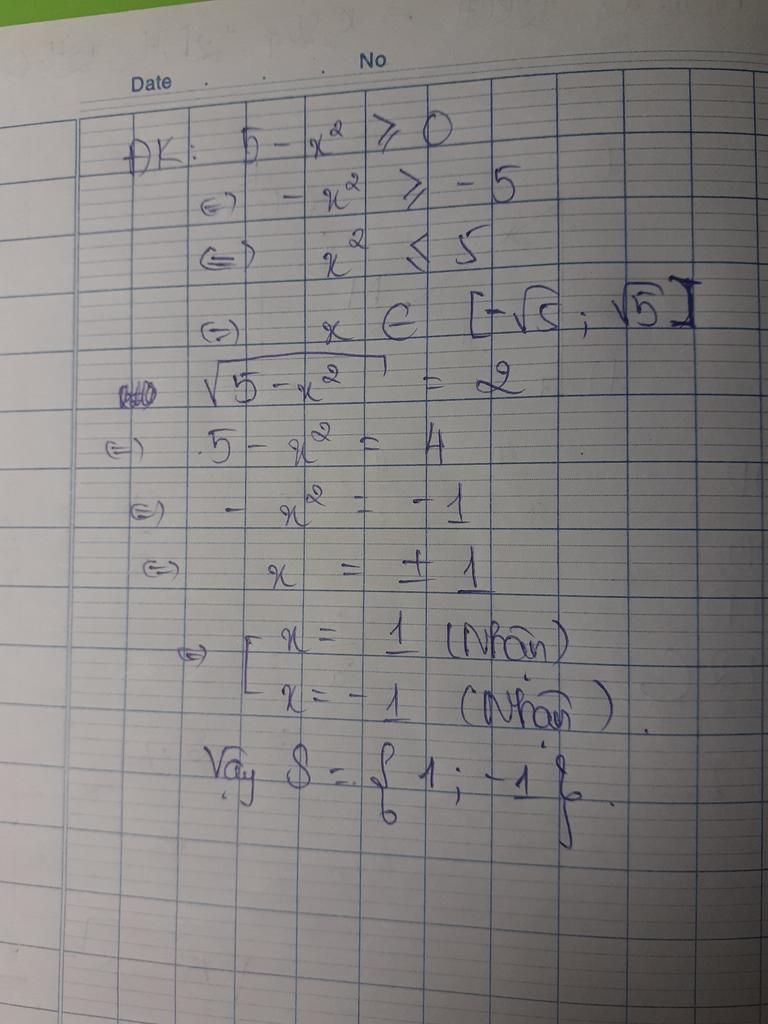 Date . . . No
ĐK: 5 - x² ⩾ 0
⇔ - x² ⩾ - 5
⇔ x² ⩽ 5
⇔ x ∈ [-√5 ; √5]
√(5 - x²) = 2
⇔ 5 - x² = 4
⇔ - x² = - 1
⇔ x = ± 1
⇔ [ x = 1 (Nhận)
x = - 1 (Nhận).
Vậy S = { 1 ; -1 }.